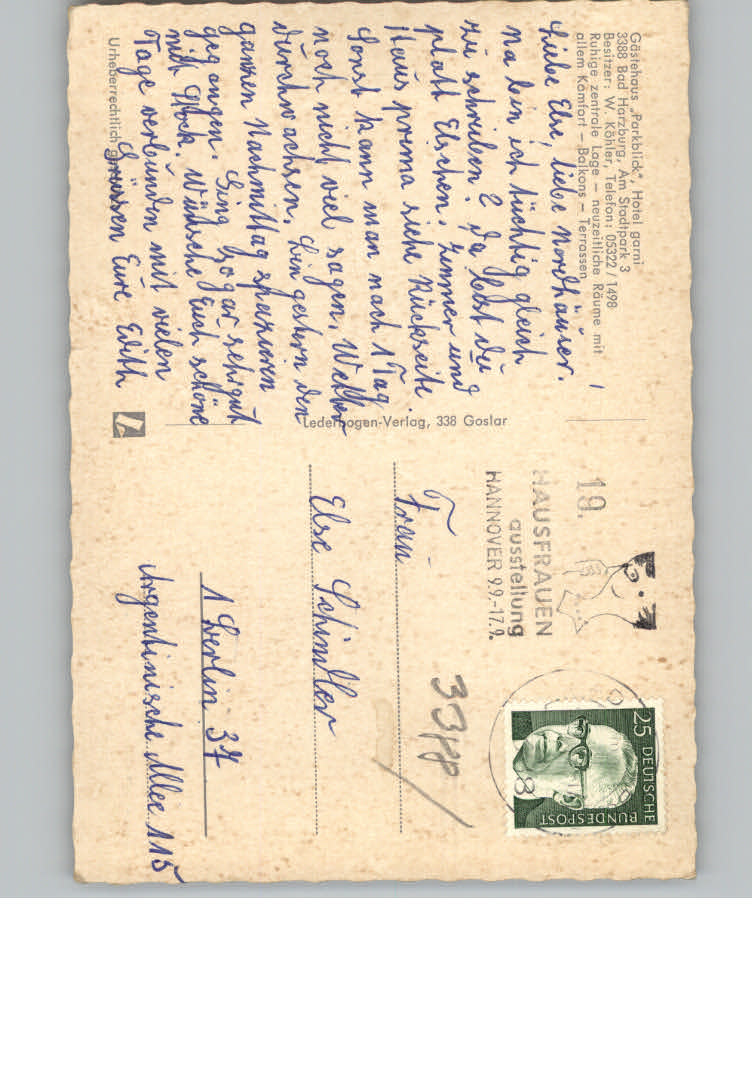 Gästehaus „Parkblick", Hotel garni
3388 Bad Harzburg, Am Stadtpark 3
Besitzer: W. Köhler, Telefon: 05322 / 1498
Ruhige zentrale Lage – neuzeitliche Räume mit
allem Komfort – Balkons – Terrassen
Liebe Else, liebe Nordhäuser!
Na bin ich tüchtig gleich
zu schreiben? Da hast du
platt Elschen. Zimmer und
Haus prima siehe Rückseite.
Sonst kann man nach 1 Tag
noch nicht viel sagen. Wetter
durchwachsen. Bin gestern den
ganzen Nachmittag spazieren
gegangen. Ging sogar sehr gut
mit Stock. Wünsche Euch schöne
Tage verbunden mit vielen
Grüssen Eure Edith
Urheberrechtlich
Lederbogen-Verlag, 338 Goslar
19.
HAUSFRAUEN
ausstellung
HANNOVER 9.9.-17.9.
25 DEUTSCHE
BUNDESPOST
8
3388
Frau
Else Schindler
1 Berlin 37
Argentinische Allee 115